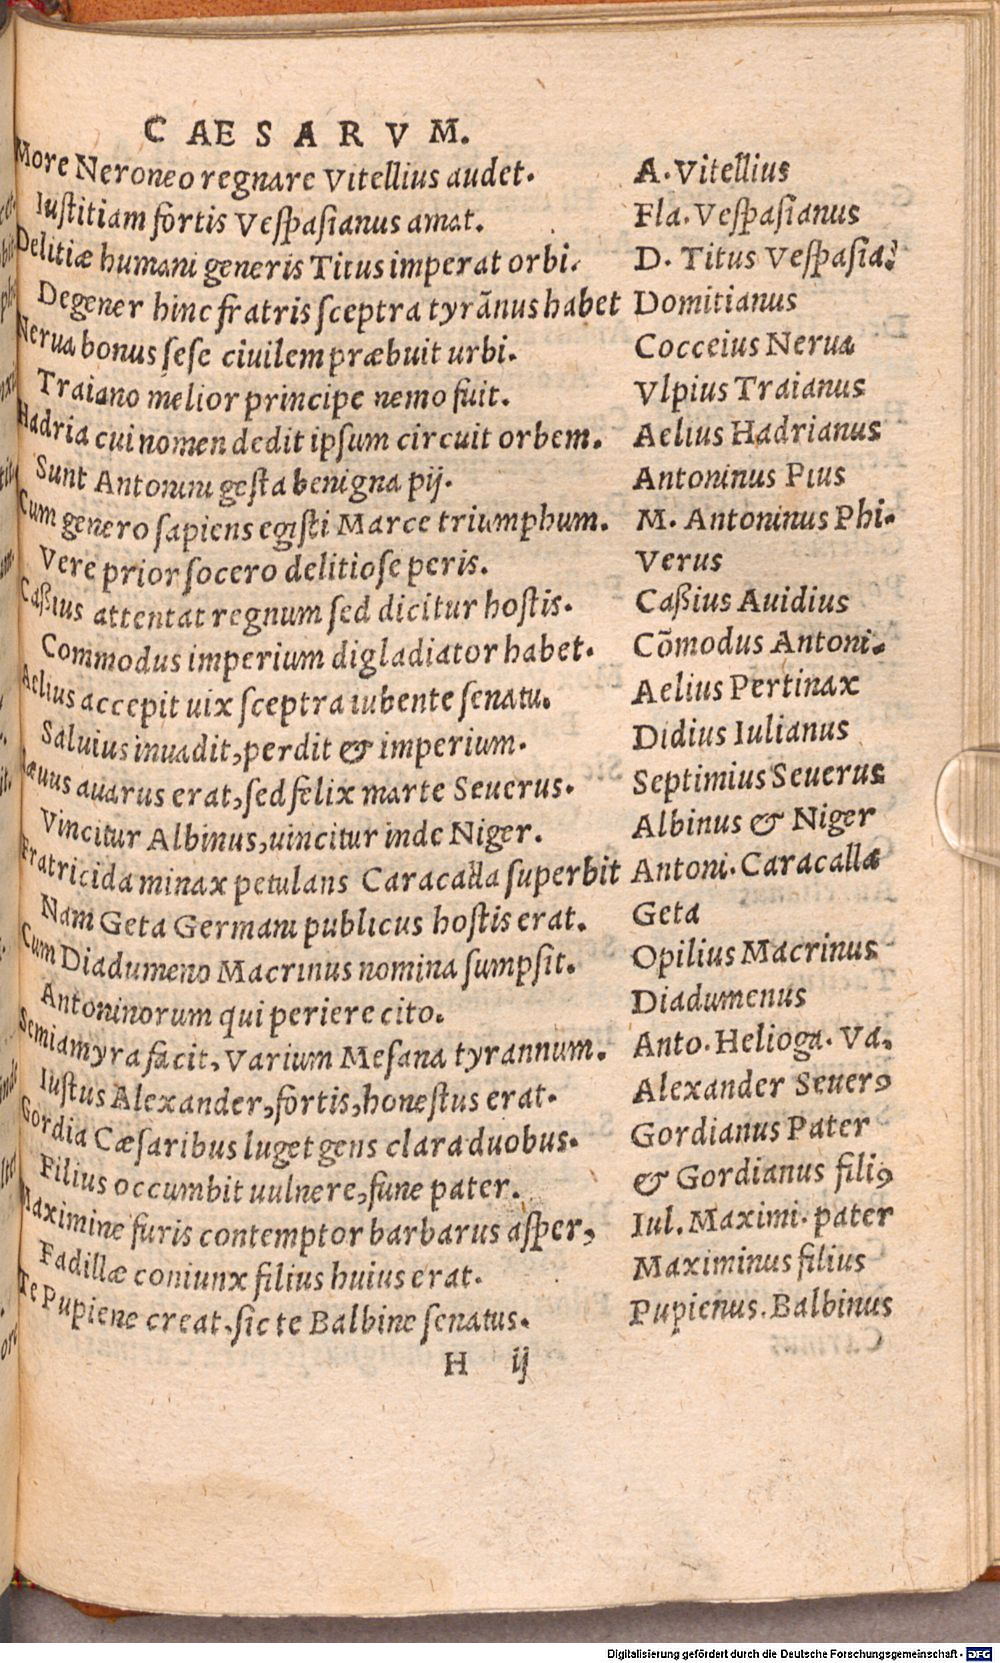 CAESARVM.
More Neroneo regnare Vitellius audet. A. Vitellius
Iuſtitiam fortis Veſpaſianus amat. Fla. Veſpaſianus
Delitiæ humani generis Titus imperat orbi. D. Titus Veſpaſia
Degener hinc fratris ſceptra tyrãnus habet Domitianus
Nerua bonus ſeſe ciuilem præbuit urbi. Cocceius Nerua
Traiano melior principe nemo fuit. Vlpius Traianus
Hadria cui nomen dedit ipſum circuit orbem. Aelius Hadrianus
Sunt Antonini geſta benigna pij. Antoninus Pius
Cum genero ſapiens egiſti Marce triumphum. M. Antoninus Phi.
Vere prior ſocero delitioſe peris. Verus
Caßius attentat regnum ſed dicitur hoſtis. Caßius Auidius
Commodus imperium digladiator habet. Cõmodus Antoni.
Aelius accepit uix ſceptra iubente ſenatu. Aelius Pertinax
Saluius inuadit, perdit & imperium. Didius Iulianus
Sæuus auarus erat, ſed felix marte Seuerus. Septimius Seuerus
Vincitur Albinus, uincitur inde Niger. Albinus & Niger
Fratricida minax petulans Caracalla ſuperbit Antoni. Caracallæ
Nam Geta Germani publicus hoſtis erat. Geta
Cum Diadumeno Macrinus nomina ſumpſit. Opilius Macrinus
Antoninorum qui periere cito. Diadumenus
Semiamyra facit, Varium Meſana tyrannum. Anto. Helioga. Va.
Iuſtus Alexander, fortis, honeſtus erat. Alexander Seuerꝰ
Gordia Cæſaribus luget gens clara duobus. Gordianus Pater
Filius occumbit uulnere, fune pater. & Gordianus filiꝰ
Maximine furis contemptor barbarus aſper, Iul. Maximi. pater
Fadillæ coniunx filius huius erat. Maximinus filius
Te Pupiene creat, ſic te Balbine ſenatus. Pupienus. Balbinus
H ij
Digitalisierung gefördert durch die Deutsche Forschungsgemeinschaft - DFG